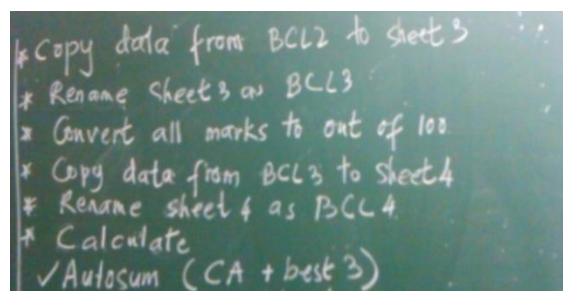 * Copy data from BCL2 to sheet 3
* Rename Sheet 3 as BCL3
* Convert all marks to out of 100
* Copy data from BCL3 to Sheet 4
* Rename sheet 4 as BCL4
* Calculate
✓ Autosum (CA + best 3)